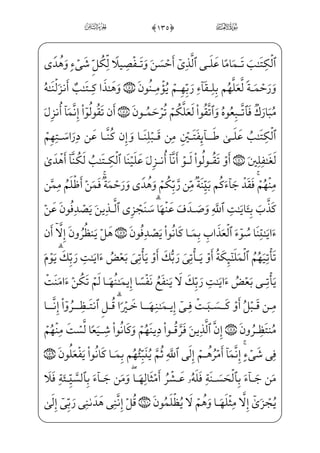 ٱلۡكِتَٰبَ تَمَامًا عَلَى ٱلَّذِيٓ أَحۡسَنَ وَتَفۡصِيلٗا لِّكُلِّ شَيۡءٖ وَهُدٗى
وَرَحۡمَةٗ لَّعَلَّهُم بِلِقَآءِ رَبِّهِمۡ يُؤۡمِنُونَ ١٥٤ وَهَٰذَا كِتَٰبٌ أَنزَلۡنَٰهُ
مُبَارَكٞ فَٱتَّبِعُوهُ وَٱتَّقُواْ لَعَلَّكُمۡ تُرۡحَمُونَ ١٥٥ أَن تَقُولُوٓاْ إِنَّمَآ أُنزِلَ
ٱلۡكِتَٰبُ عَلَىٰ طَآئِفَتَيۡنِ مِن قَبۡلِنَا وَإِن كُنَّا عَن دِرَاسَتِهِمۡ
لَغَٰفِلِينَ ١٥٦ أَوۡ تَقُولُواْ لَوۡ أَنَّآ أُنزِلَ عَلَيۡنَا ٱلۡكِتَٰبُ لَكُنَّآ أَهۡدَىٰ
مِنۡهُمۡۚ فَقَدۡ جَآءَكُم بَيِّنَةٞ مِّن رَّبِّكُمۡ وَهُدٗى وَرَحۡمَةٞۚ فَمَنۡ أَظۡلَمُ مِمَّن
كَذَّبَ بِـَٔايَٰتِ ٱللَّهِ وَصَدَفَ عَنۡهَاۗ سَنَجۡزِي ٱلَّذِينَ يَصۡدِفُونَ عَنۡ
ءَايَٰتِنَا سُوٓءَ ٱلۡعَذَابِ بِمَا كَانُواْ يَصۡدِفُونَ ١٥٧ هَلۡ يَنظُرُونَ إِلَّآ أَن
تَأۡتِيَهُمُ ٱلۡمَلَٰٓئِكَةُ أَوۡ يَأۡتِيَ رَبُّكَ أَوۡ يَأۡتِيَ بَعۡضُ ءَايَٰتِ رَبِّكَۗ يَوۡمَ
يَأۡتِي بَعۡضُ ءَايَٰتِ رَبِّكَ لَا يَنفَعُ نَفۡسًا إِيمَٰنُهَا لَمۡ تَكُنۡ ءَامَنَتۡ
مِن قَبۡلُ أَوۡ كَسَبَتۡ فِيٓ إِيمَٰنِهَا خَيۡرٗاۗ قُلِ ٱنتَظِرُوٓاْ إِنَّا
مُنتَظِرُونَ ١٥٨ إِنَّ ٱلَّذِينَ فَرَّقُواْ دِينَهُمۡ وَكَانُواْ شِيَعٗا لَّسۡتَ مِنۡهُمۡ
فِي شَيۡءٍۚ إِنَّمَآ أَمۡرُهُمۡ إِلَى ٱللَّهِ ثُمَّ يُنَبِّئُهُم بِمَا كَانُواْ يَفۡعَلُونَ ١٥٩
مَن جَآءَ بِٱلۡحَسَنَةِ فَلَهُۥ عَشۡرُ أَمۡثَالِهَاۖ وَمَن جَآءَ بِٱلسَّيِّئَةِ فَلَا
يُجۡزَىٰٓ إِلَّا مِثۡلَهَا وَهُمۡ لَا يُظۡلَمُونَ ١٦٠ قُلۡ إِنَّنِي هَدَىٰنِي رَبِّيٓ إِلَىٰ